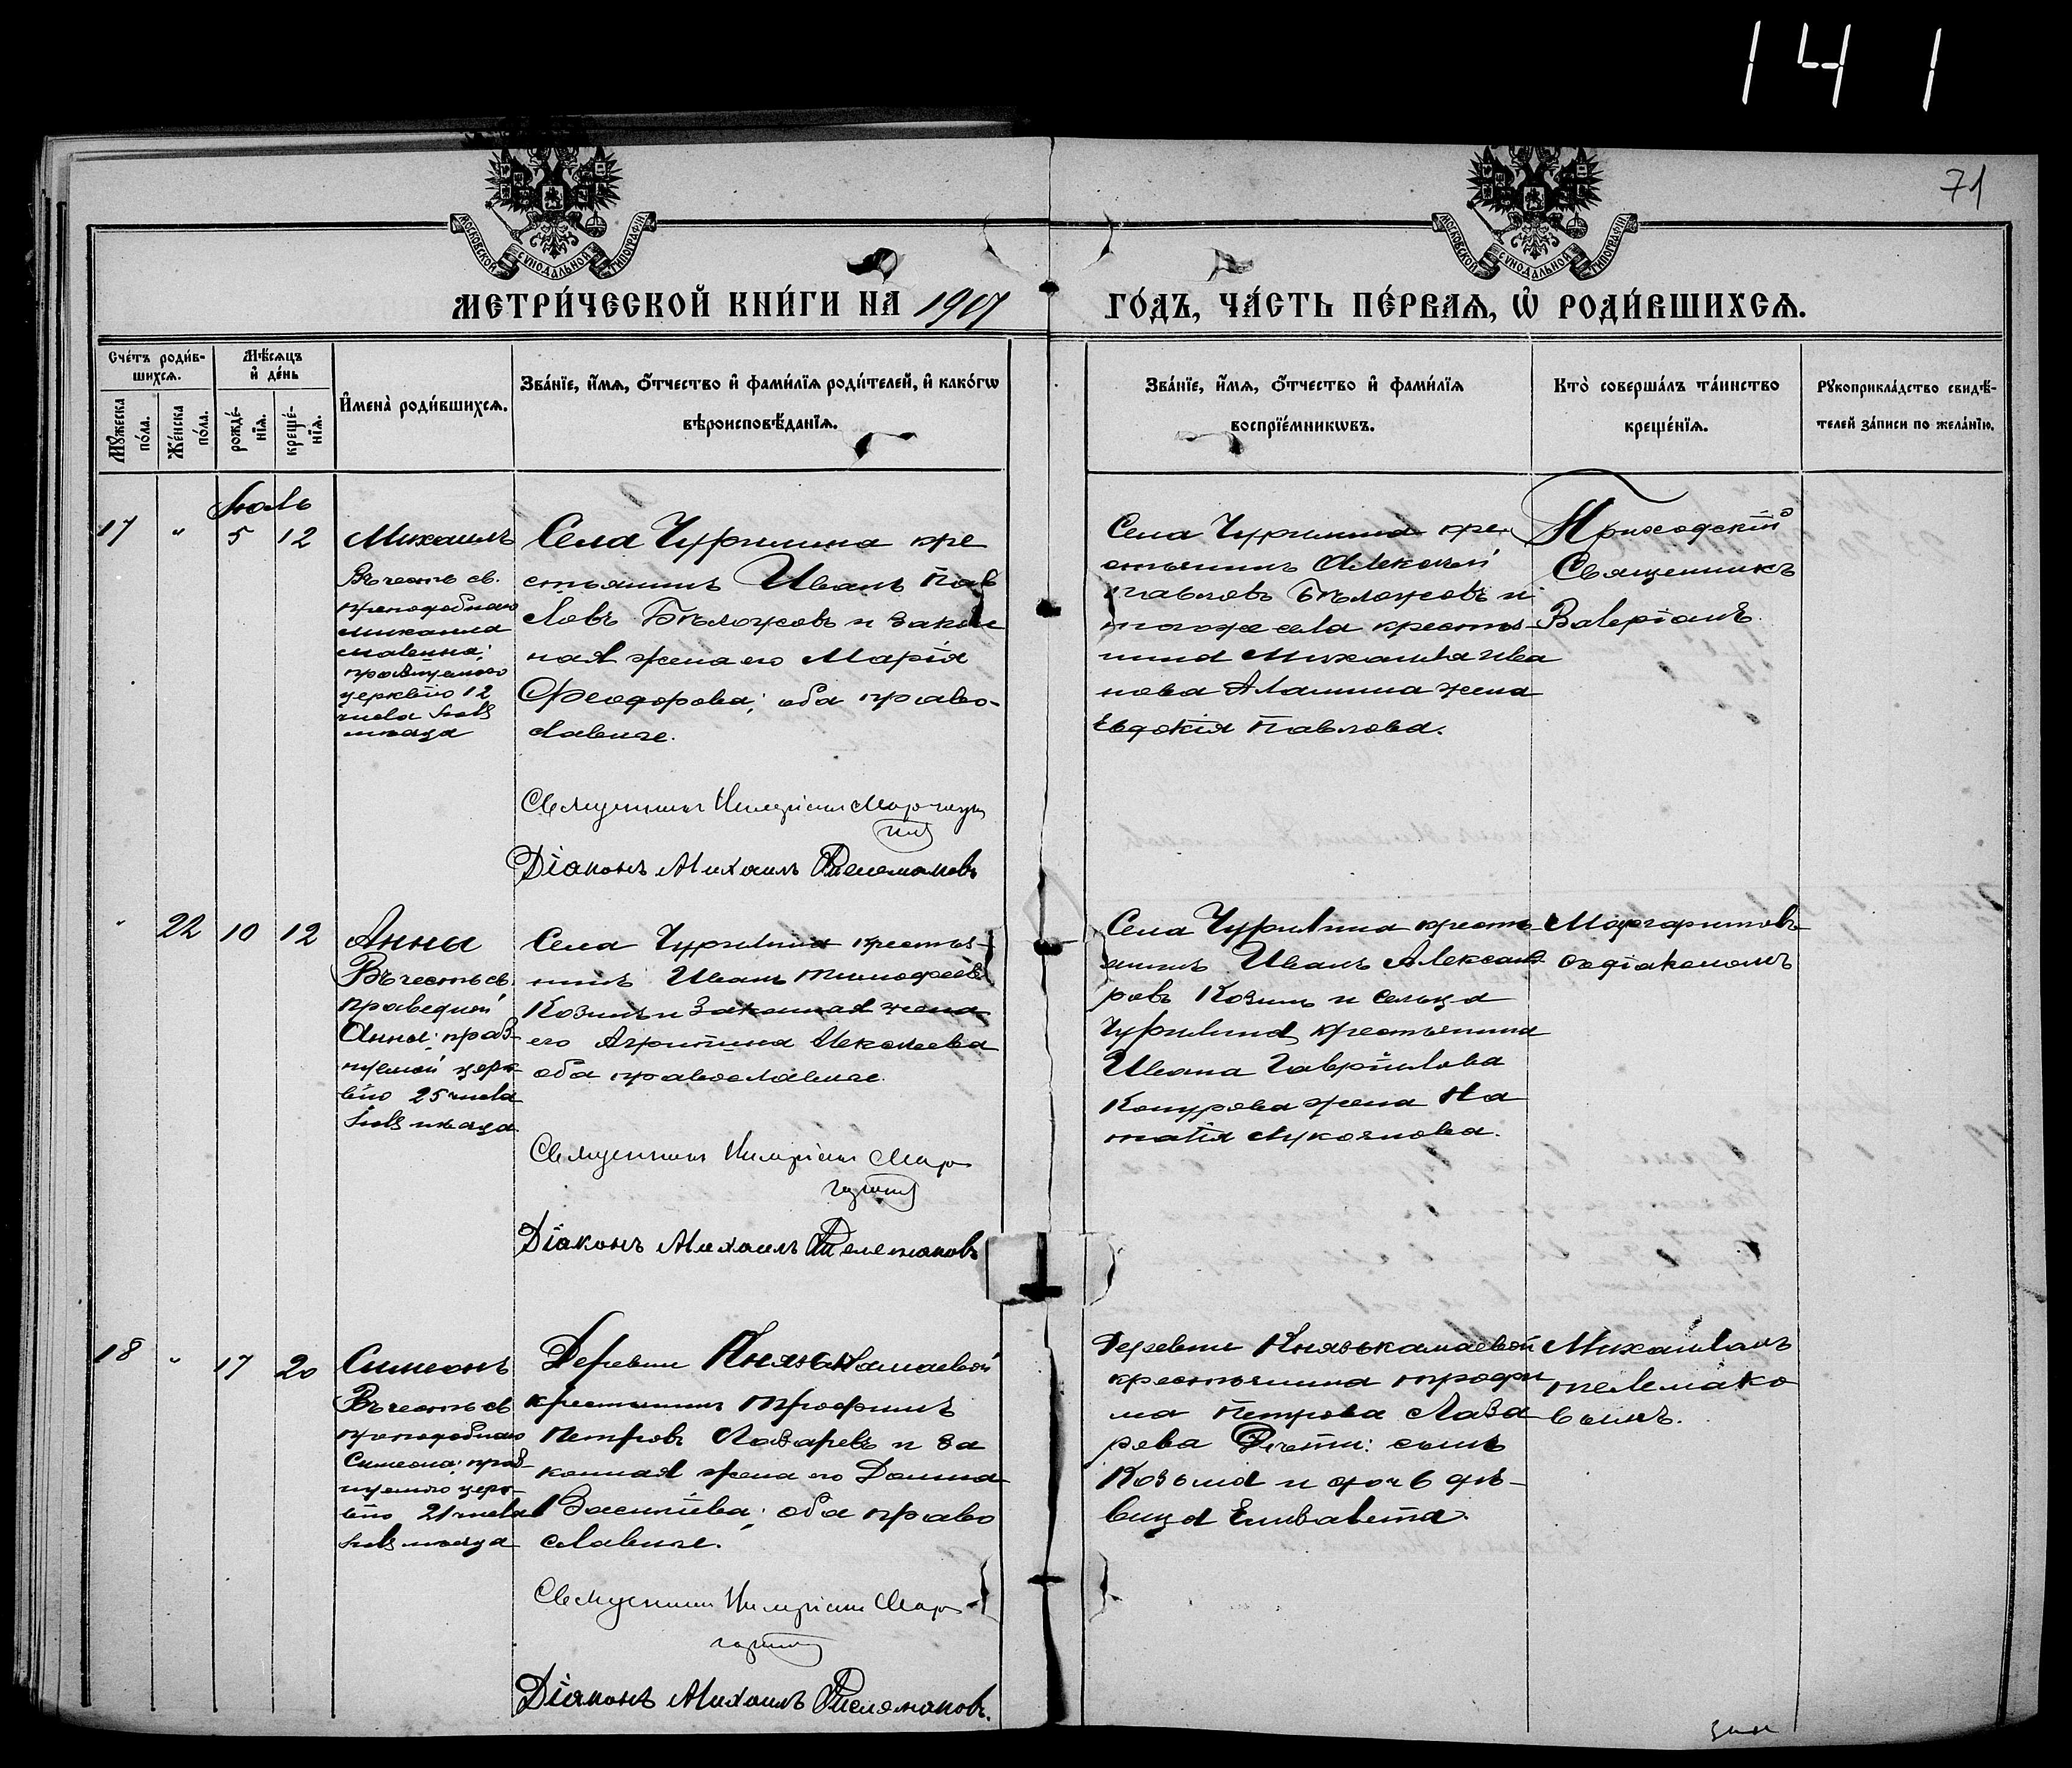 141
71
МОСКОВСКОЙ СѴНОДАЛЬНОЙ ТИПОГРАФІИ
МОСКОВСКОЙ СѴНОДАЛЬНОЙ ТИПОГРАФІИ
МЕТРИ́ЧЕСКОЙ КНИ́ГИ НА 1907 ГО́ДЪ, ЧА́СТЬ ПЕ́РВАѦ, Ѡ РОДИ́ВШИХСѦ.
Сче́тъ роди́в-
шихсѧ.
Мꙋ́жеска по́ла.
Же́нска по́ла.
Мѣ́сѧцъ и҆ де́нь
рожде́-
нїѧ.
креще́-
нїѧ.
И҆мена̀ роди́вшихсѧ.
Зва́нїе, и҆́мѧ, ѻ҆́тчество и҆ фами́лїѧ роди́телей, и҆ како́гѡ
вѣроисповѣ́данїѧ.
Зва́нїе, и҆́мѧ, ѻ҆́тчество и҆ фами́лїѧ
воспрїе́мникѡвъ.
Кто̀ соверша́лъ та́инство
креще́нїѧ.
Рꙋкоприкла́дство свидѣ́-
телей за́писи по жела́нїю.
Іюль
17 " 5 12
Михаилъ
Въ честь св.
преподобнаго
михаила
малеина;
празднуемаго
церквію 12
числа іюля
месяца
Села Чурилина кре
стьянинъ Иванъ Пав
ловъ Бѣлоусовъ и закон
ная жена его Марія
Феодорова; оба право-
славные.
Священникъ
Діаконъ Михаилъ Телемаковъ
Села Чурилина кре
стьянинъ Алексей
Павловъ Бѣлоусовъ и
тогоже села крестья-
нина Михаила Ива
нова Аланина жена
Евдокія Павлова.
Приходскій
Священникъ
Валеріанъ
" 22 10 12
Анна
Въ честь св.
праведной
Анны; праз-
нуемой церк
вію 25 числа
іюля месяца.
Села Чурилина крестья-
нинъ Иванъ Тимофеевъ
Козинъ и законная жена
его Агрипина Алексеева
оба православные.
Священникъ
Діаконъ Михаилъ Телемаковъ
Села Чурилина кресть
янинъ Иванъ Александ
ровъ Козинъ и сельца
Чурилина крестьянина
Ивана Гаврилова
жена На
талія Лукоянова.
Маргаритовъ
съ діакономъ
18 " 17 20
Симеонъ
Въ честь св
преподобнаго
Симеона; праз-
нуемаго церк-
вію 21 числа
іюля месяца
Деревни Князькамаевой
крестьянинъ Трофимъ
Петровъ Лазаревъ и за
конная жена его Домна
Васильева; оба право
славные.
Священникъ
Діаконъ Михаилъ Телемаковъ.
Деревни Князькамаевой
крестьянина Трофи
ма Петрова Лаза
рева дѣти: сынъ
Козьма и дочь дѣ-
вица Елизавета.
Михаиломъ
Телемако
вымъ.